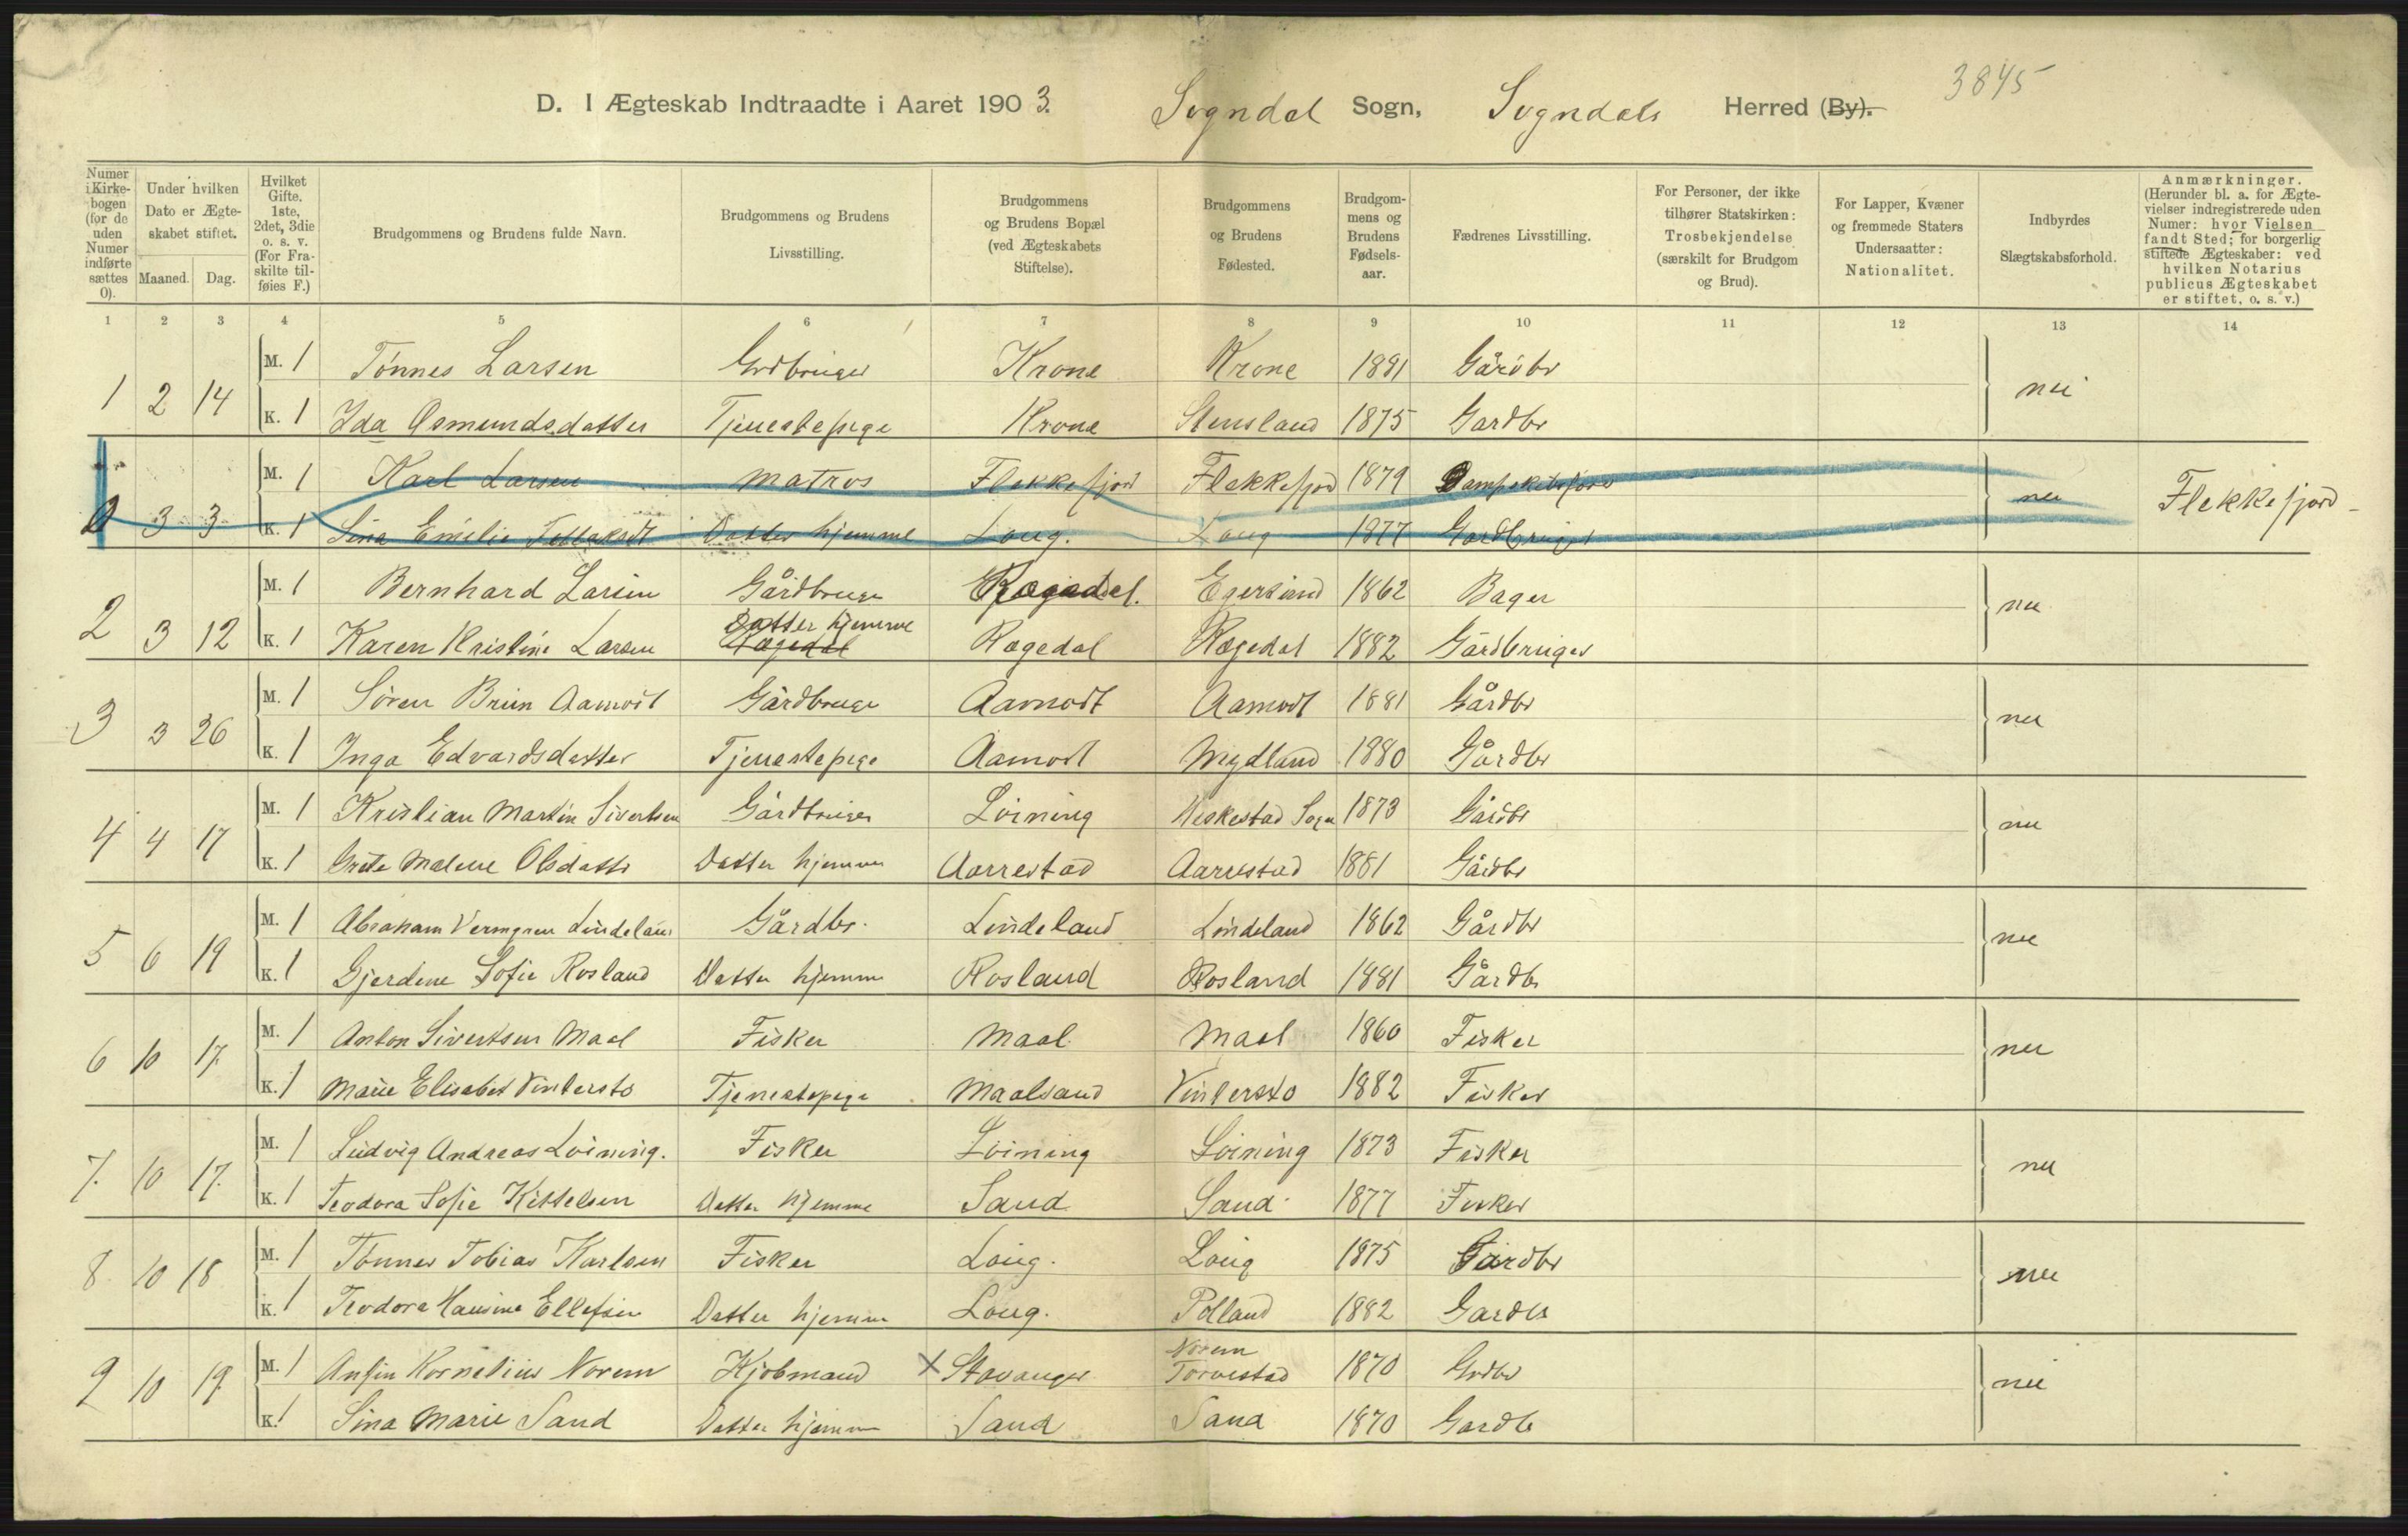 3845
D. I Ægteskab Indtraadte i Aaret 1903. Sogndal Sogn, Sogndals Herred (By).
Numer i Kirkebogen (for de uden Numer indførte sættes 0).
Under hvilken Dato er Ægteskabet stiftet.
Maaned. Dag.
Hvilket Gifte, 1ste, 2det, 3die o. s. v. (For Fraskilte tilføies F.)
Brudgommens og Brudens fulde Navn.
Brudgommens og Brudens Livsstilling.
Brudgommens og Brudens Bopæl (ved Ægteskabets Stiftelse).
Brudgommens og Brudens Fødested.
Brudgommens og Brudens Fødselsaar.
Fædrenes Livsstilling.
For Personer, der ikke tilhører Statskirken: Trosbekjendelse (særskilt for Brudgom og Brud).
For Lapper, Kvæner og fremmede Staters Undersaatter: Nationalitet.
Indbyrdes Slægtskabsforhold.
Anmærkninger. (Herunder bl. a. for Ægtevielser indregistrerede uden Numer: hvor Vielsen fandt Sted; for borgerlig stiftede Ægteskaber: ved hvilken Notarius publicus Ægteskabet er stiftet, o. s. v.)
1 2 3 4 5 6 7 8 9 10 11 12 13 14
M. 1 Tønnes Larsen Grdbruger Krone Krone 1881 Gårdbr
1 2 14 nei
K. 1 Ida Asmundsdatter Tjenestepige Krone Stensland 1875 Gardbr
M. 1 Karl Larsen Matros Flekkefjord Flekkefjord 1879
0 3 3 nei Flekkefjord
K. 1 Sina Emilie Datter hjemme Loug. Loug 1877 Gardbruger
M. 1 Bernhard Larsen Gårdbruger Rægedal. Egersund 1862 Bager
2 3 12 nei
Datter hjemme
K. 1 Karen Kristine Larsen Rægedal Rægedal Rægedal 1882 Gårdbruger
M. 1 Søren Brun Aamodt Gårdbruger Aamodt Aamodt 1881 Gårdbr
3 3 26 nei
K. 1 Inga Edvardsdatter Tjenestepige Aamodt Mydland 1880 Gårdbr
M. 1 Kristian Martin Sivertsen Gårdbruger Løining Heskestad Sogn 1873 Gårdbr
4 4 17 nei
K. 1 Grete Malene Olsdatter Datter hjemme Aarrestad Aarrestad 1881 Gårdbr
M. 1 Abraham Vermgren Lindeland Gårdbr. Lindeland Lindeland 1862 Gårdbr
5 6 19 nei
K. 1 Gjerdine Sofie Rosland Datter hjemme Rosland Rosland 1881 Gårdbr
M. 1 Anton Sivertsen Maal Fisker Maal Maal 1860 Fisker
6 10 17. nei
K. 1 Marie Elisabet Vintersto Tjenestepige Maalsand Vintersto 1882 Fisker
M. 1 Ludvig Andreas Løining. Fisker Løining Løining 1873 Fisker
7. 10 17. nei
K. 1 Teodora Sofie Kittelsen Datter hjemme Sand Sand 1877 Fisker
M. 1 Tønnes Tobias Karlsen Fisker Loug. Loug 1875 Gårdbr
8. 10 18 nei
K. 1 Teodora Hansine Ellefsen Datter hjemme Loug. Polland 1882 Gardbr
Norem
M. 1 Anfin Kornelius Norem Kjøbmand x Stavanger Torvestad 1870 Grdbr
9 10 19. nei
K. 1 Sina Marie Sand Datter hjemme Sand Sand 1870 Gardb